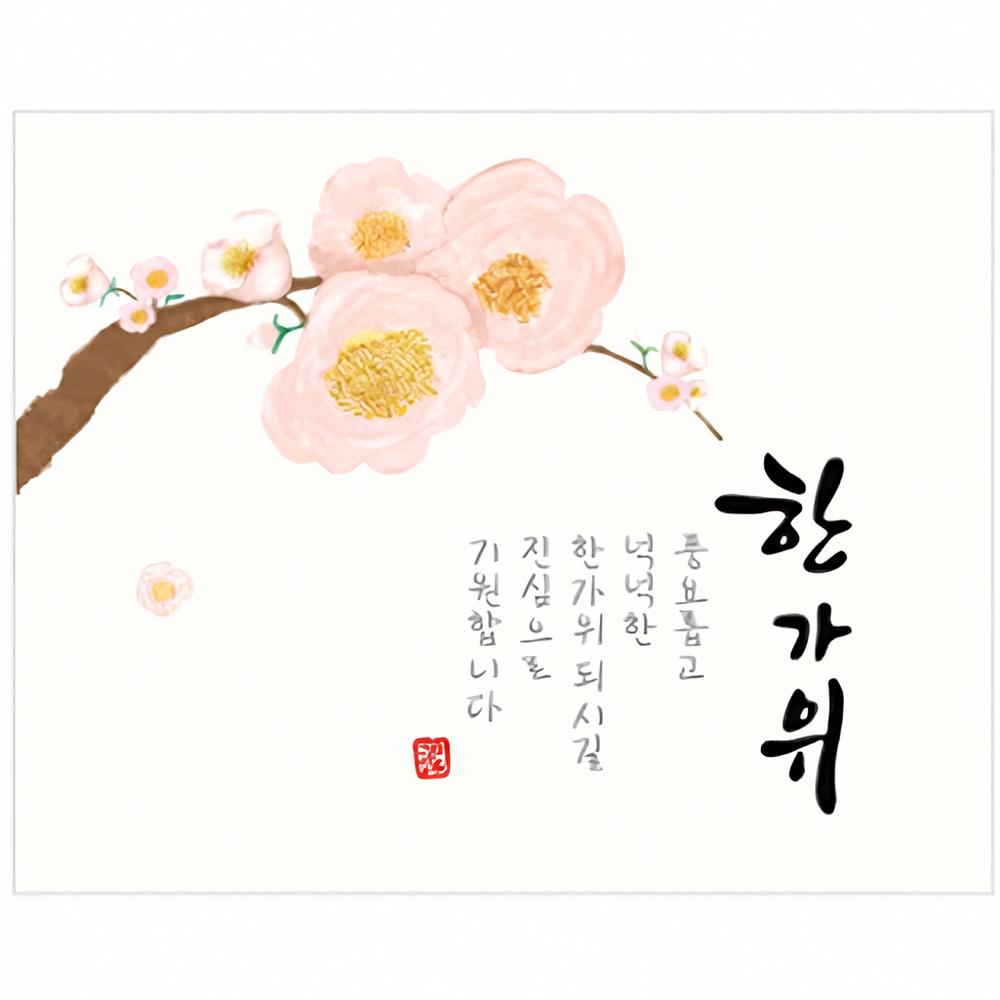 한가위
풍요롭고
넉넉한
한가위되시길
진심으로
기원합니다